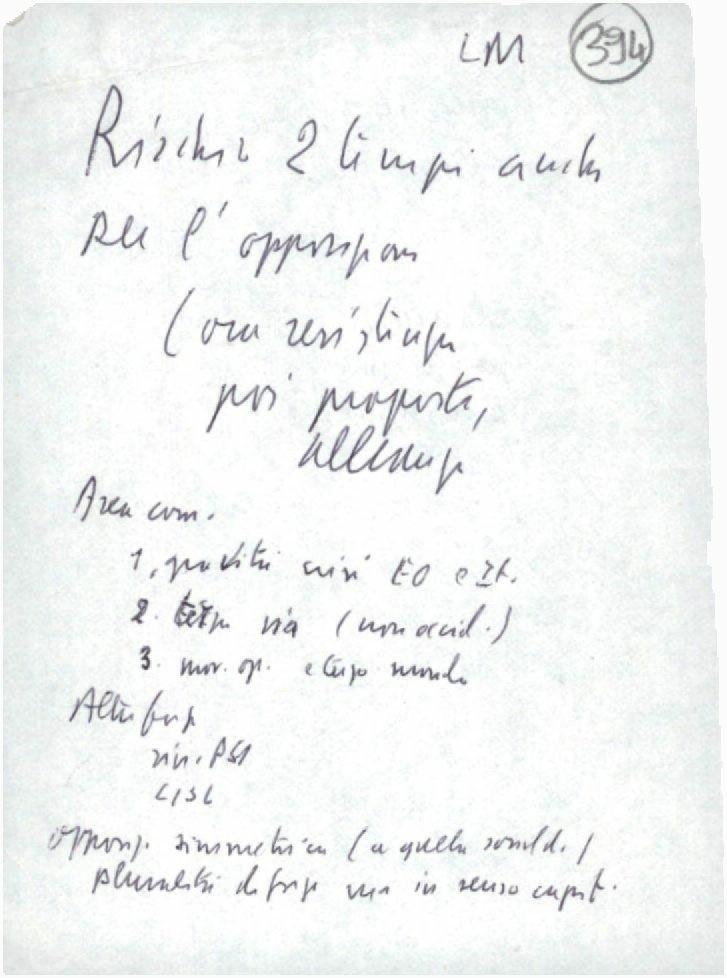 LM 394
Rischio 2 tempi anche
per l'opposizione
(ora resistenza
poi proposta,
alleanze
Area com.
1, gravità crisi EO e It.
2. terza via (non occid.)
3. mov. op. e terzo mondo
Altre forze
sin. PSI
CISL
opposiz. simmetrica (a quella sociald.)
pluralità di forze ma in senso